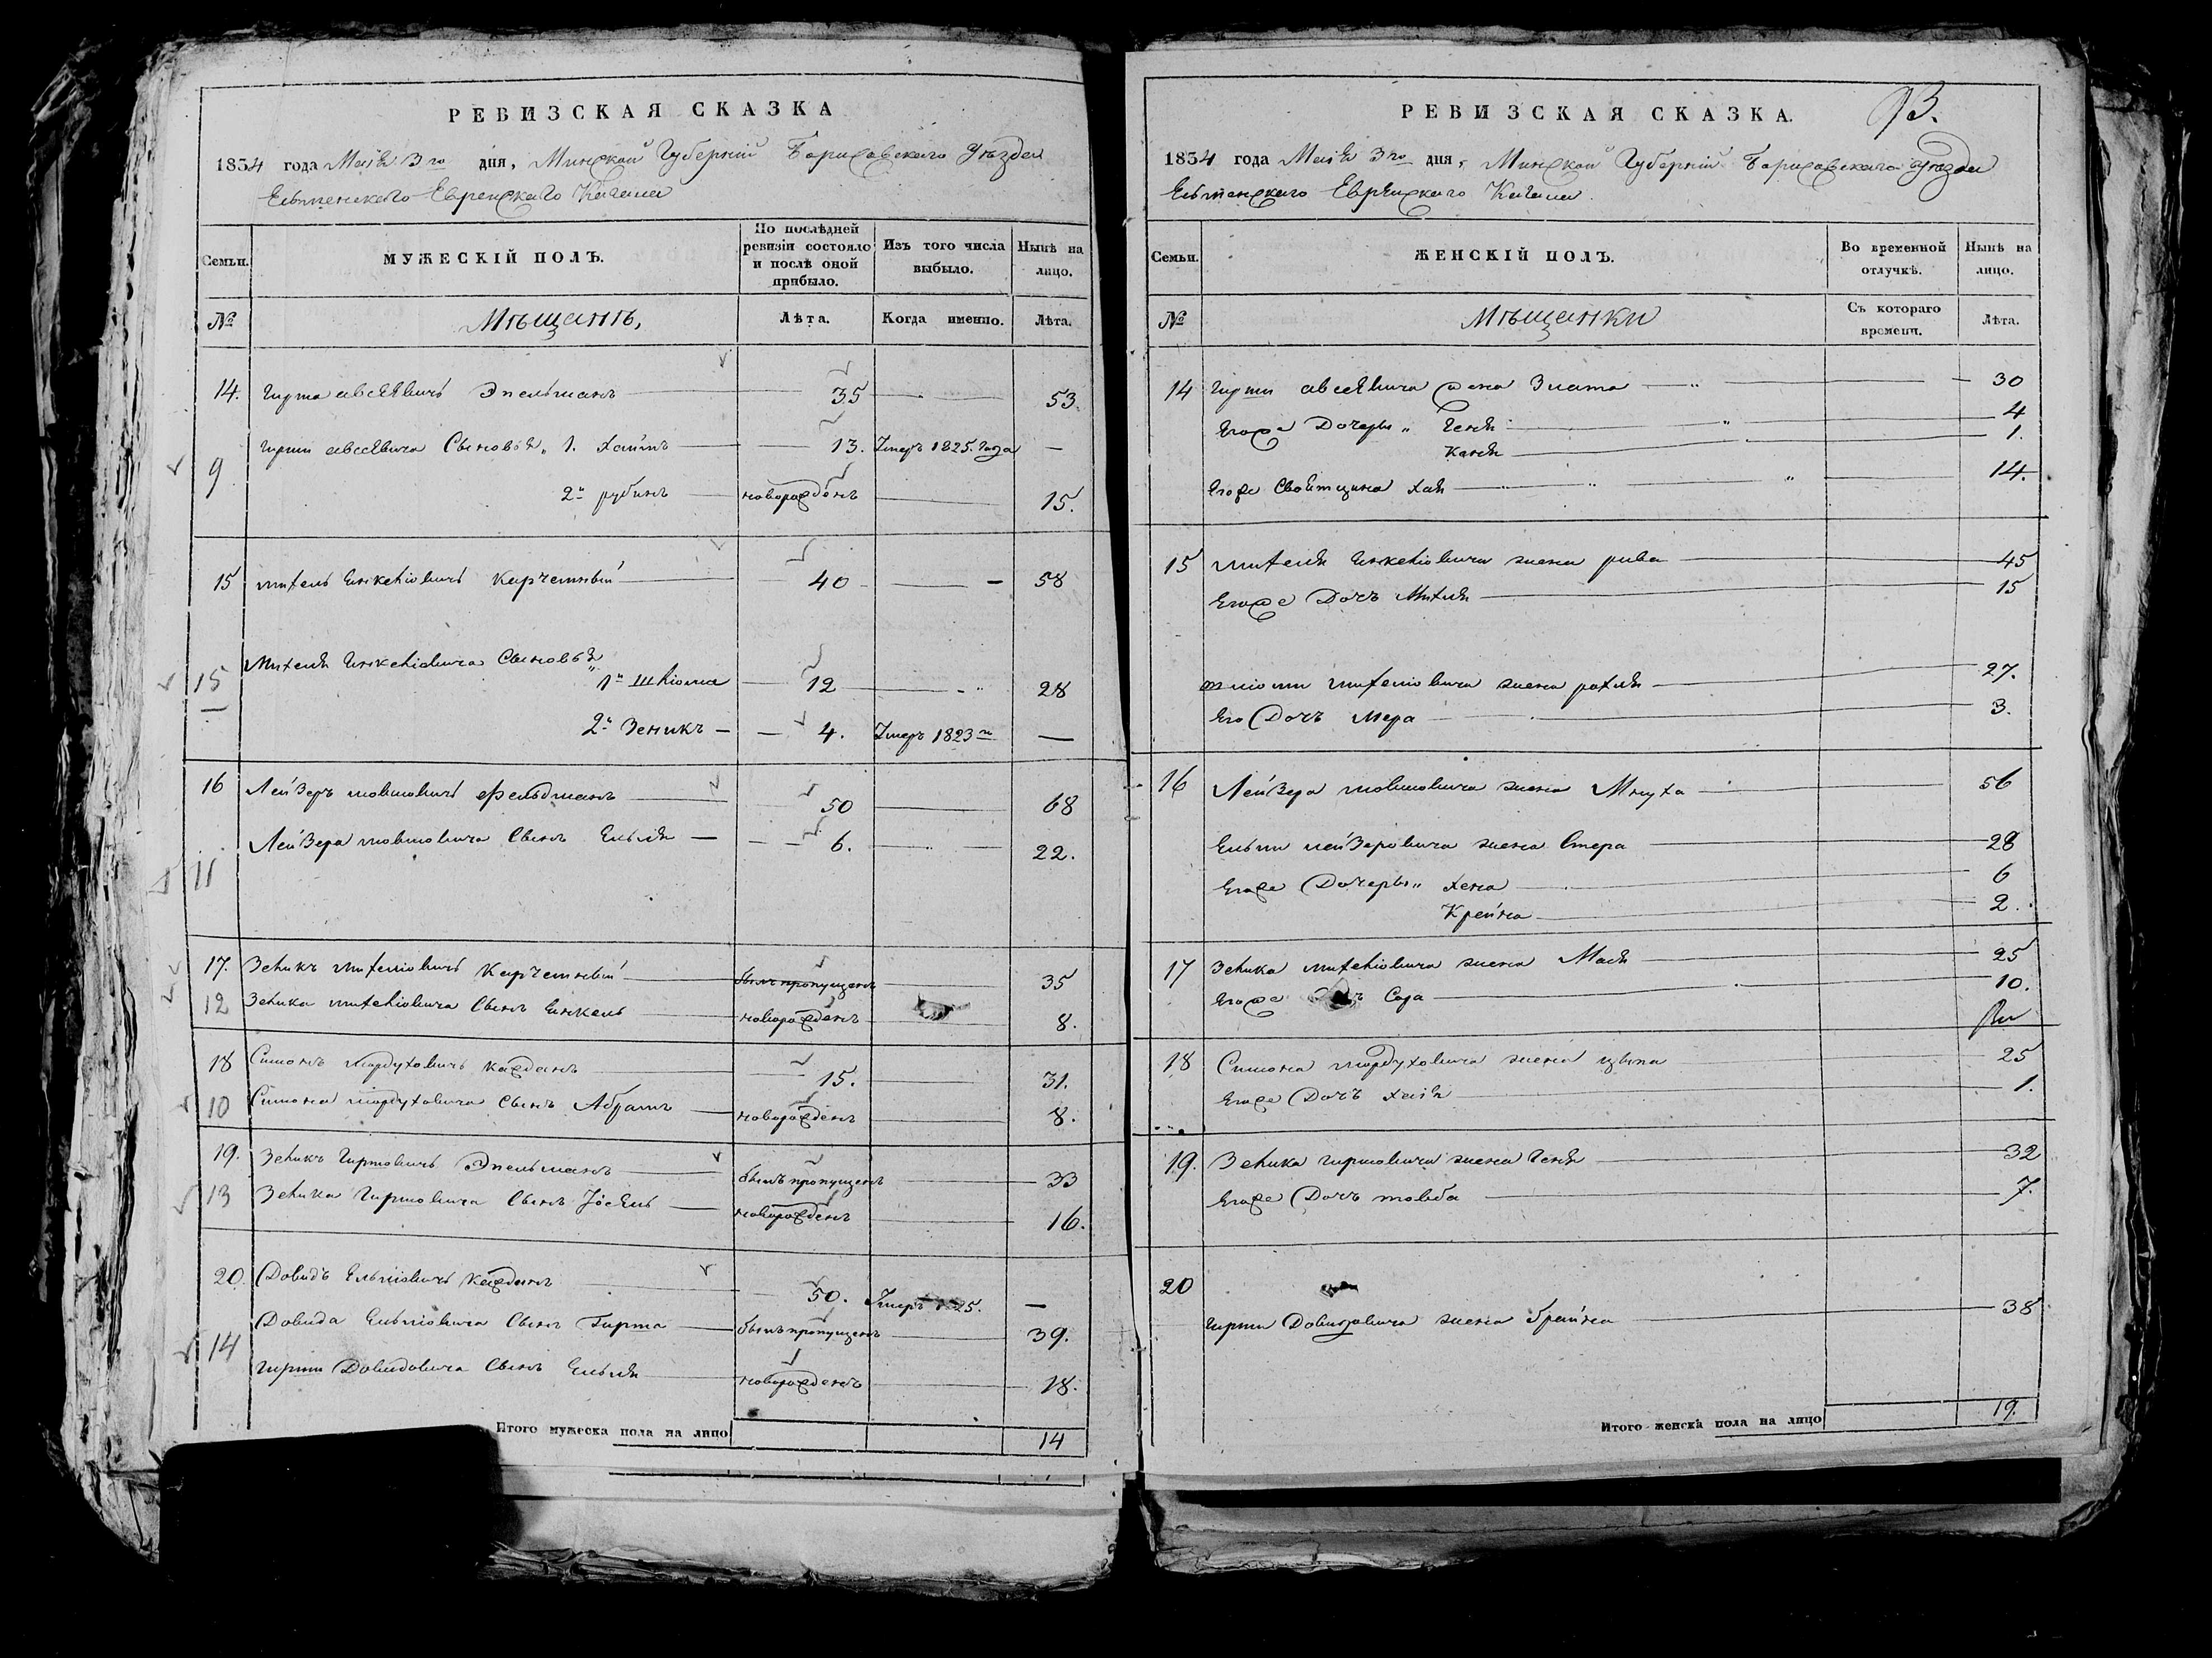 РЕВИЗСКАЯ СКАЗКА
1834 года Маія 3го дня, Минской Губерніи Борисовскаго Уѣзда
Еврейскаго Кагала
Семьи.
МУЖЕСКІЙ ПОЛЪ.
По послѣдней ревизіи состояло и послѣ оной прибыло.
Изъ того числа выбыло.
Нынѣ на лицо.
№
Мѣщанъ,
Лѣта.
Когда именно.
Лѣта.
14. Гирша Авсѣевичъ Эпельманъ 35 53.
9 Гирши Авсѣевича Сыновья 1. Хаимъ 13. Умеръ 1825. года —
2й Рубинъ новорожденъ 15.
15 Михель Янкеліовичъ Карчемный 40 58
15 Михеля Янкеліовича Сыновья
1й Шліома 12 28
2й Зеликъ 4. Умеръ 1823го —
16 Лейзеръ Мовшовичъ Фельдманъ 50 68
11 Лейзера Мовшовича Сынъ Ельля 6. 22.
17. Зеликъ Михеліовичъ Карчемный былъ пропущенъ 35
12 Зелика Михеліовича Сынъ Янкель новорожденъ 8.
18 Симонъ Мордуховичъ Кажданъ 15. 31.
10 Симона Мордуховича Сынъ Абрамъ новорожденъ 8.
19. Зеликъ Гиршовичъ Эпельманъ былъ пропущенъ 33
13 Зелика Гиршовича Сынъ Іосель новорожденъ 16.
20. Довидъ Ельліовичъ Кажданъ 50. Умеръ 1825. —
14 Довида Ельліовича Сынъ Гирша былъ пропущенъ 39.
Гирши Довидовича Сынъ Ельля новорожденъ 18.
Итого мужеска пола на лицо 14
93.
РЕВИЗСКАЯ СКАЗКА.
1834 года Маія 3го дня, Минской Губерніи Борисовскаго Уѣзда
Еврейскаго Кагала.
Семьи.
ЖЕНСКІЙ ПОЛЪ.
Во временной отлучкѣ.
Нынѣ на лицо.
№
Мѣщанки
Съ котораго времени.
Лѣта.
14 Гирши Авсѣевича жена Злата 30
Егоже Дочери „ Геня 4
Каня 1.
Егоже Хая 14.
15 Михеля Янкеліовича жена Рива 45
Егоже Дочь Михля 15
Шліомы Михеліовича жена Рохля 27.
Его Дочь Мера 3.
16 Лейзера Мовшовича жена Мнуха 56
Ельли Лейзеровича жена Стера 28
Егоже Дочери „ Хена 6
Крейна 2.
17 Зелика Михеліовича жена Мася 25
Егоже Сора 10.
18 Симона Мордуховича жена Цыпа 25
Егоже Дочь Хася 1.
19. Зелика Гиршовича жена Геня 32
Егоже Дочь Товба 7.
20
Гирши Довидовича жена Брайна 38
Итого женска пола на лицо 19.